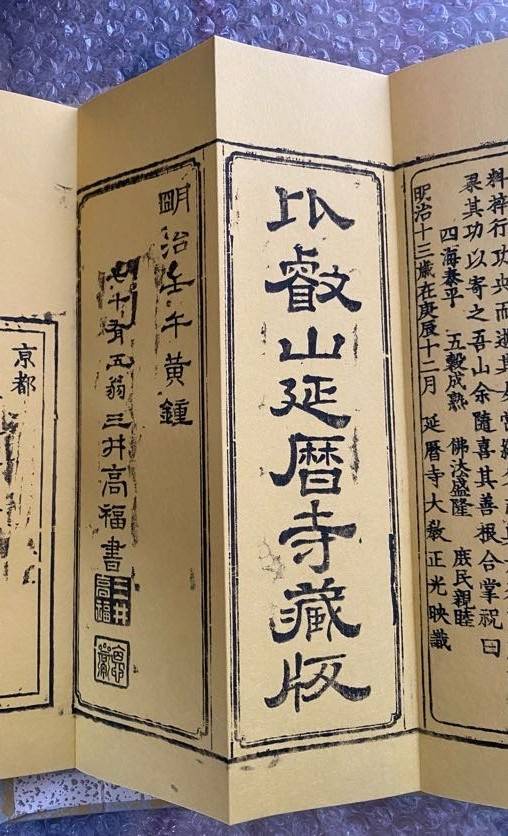 料梓行功
其功以寄之吾山余隨喜其善根合掌祝曰
四海泰平 五穀成熟 佛法盛隆 庶民親睦
明治十三歳在庚辰十二月 延暦寺大教正光映識
比叡山延暦寺藏版
明治壬午黄鍾
七十有五翁三井高福書
三井高福
京都